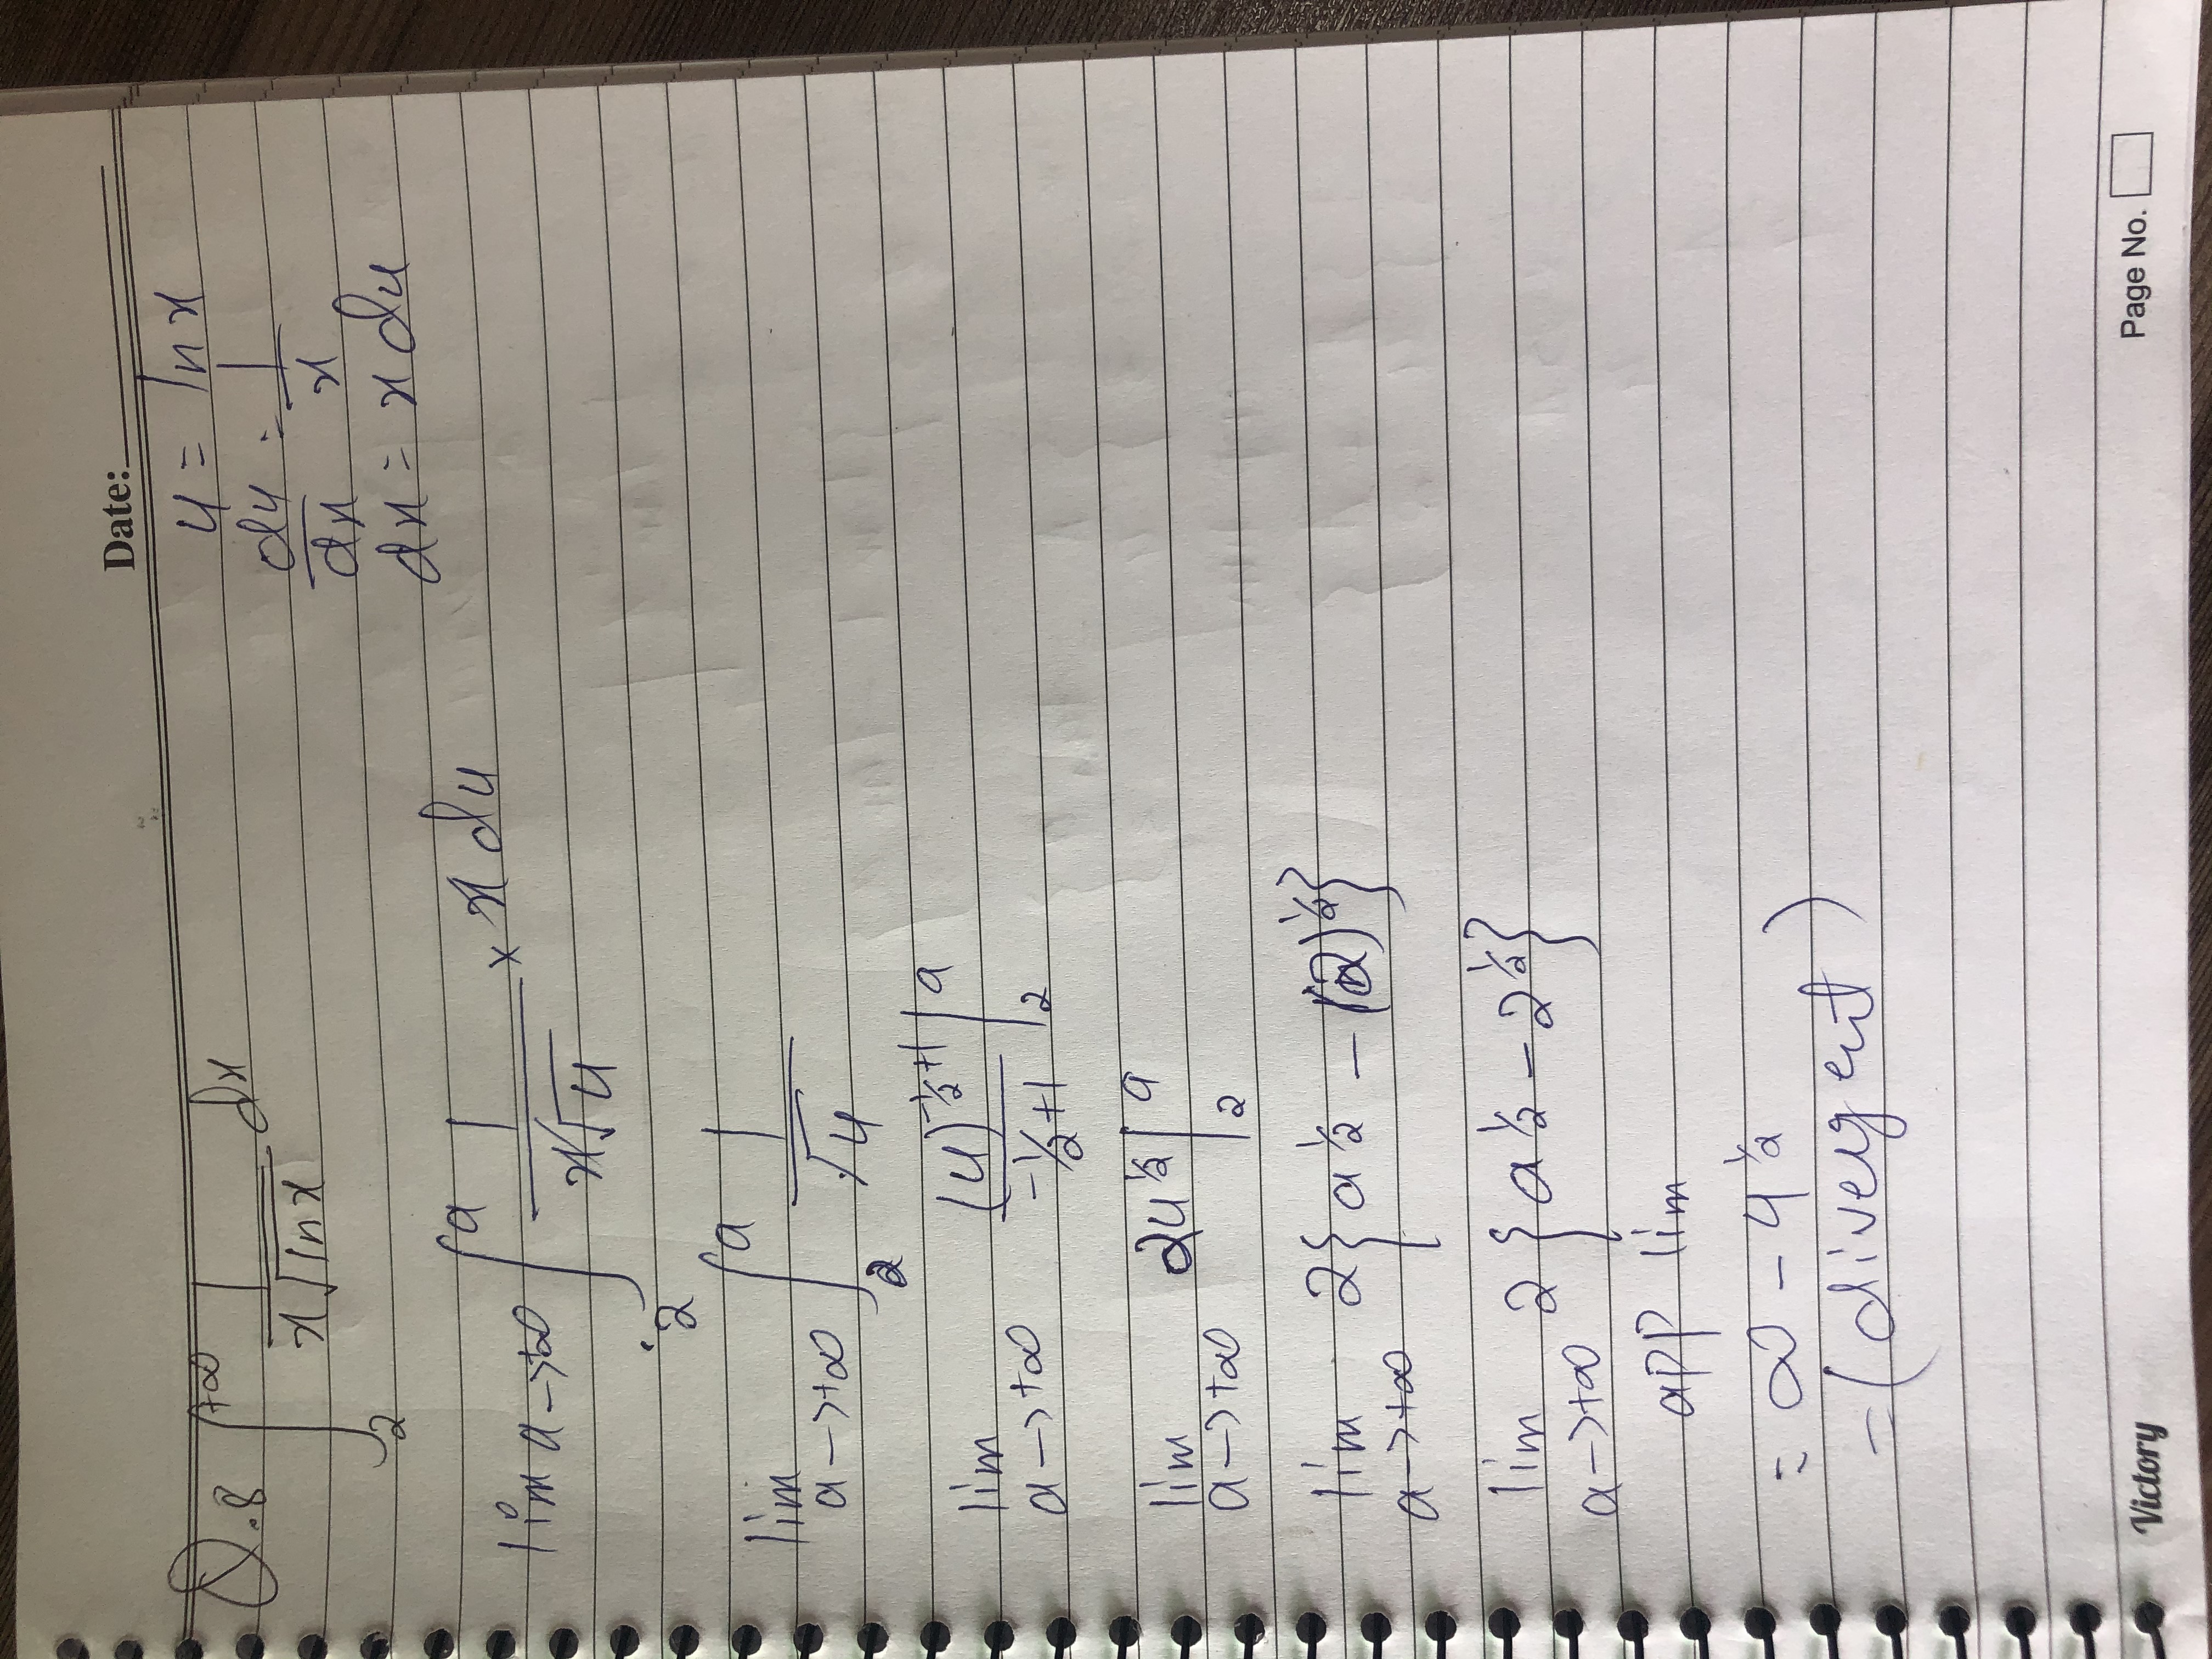 Date:
Q.8 ∫₂^{+∞} 1/(x√ln x) dx
u = ln x
du/dx = 1/x
dx = x du
lim a→+∞ ∫₂^a 1/(x√u) × x du
lim a→+∞ ∫₂^a 1/√u
lim a→+∞ (u)^{-1/2+1}/(-1/2+1) |₂^a
lim a→+∞ 2u^{1/2} |₂^a
lim a→+∞ 2{a^{1/2} - (2)^{1/2}}
lim a→+∞ 2{a^{1/2} - 2^{1/2}}
app lim
= ∞ - 4^{1/2}
= (divergent)
Victory
Page No.